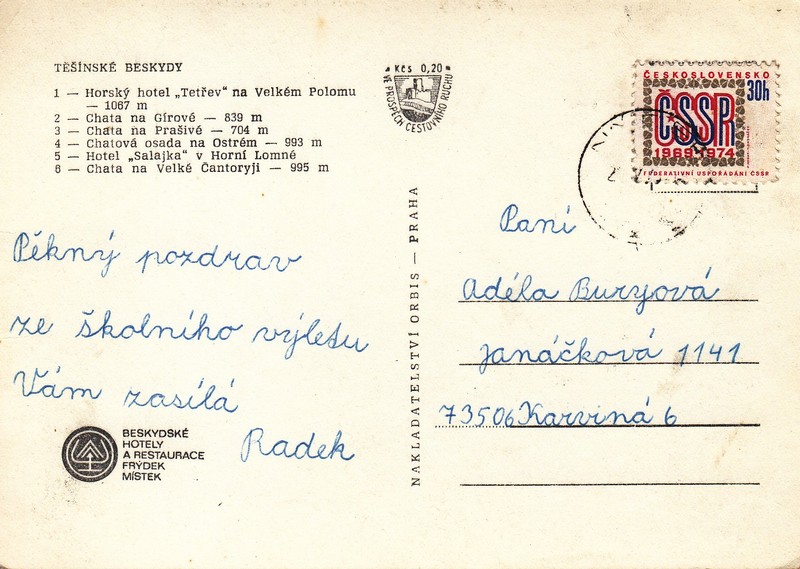 TĚŠÍNSKÉ BESKYDY
1 — Horský hotel „Tetřev" na Velkém Polomu
— 1067 m
2 — Chata na Gírové — 839 m
3 — Chata na Prašivé — 704 m
4 — Chatová osada na Ostrém — 993 m
5 — Hotel „Salajka" v Horní Lomné
6 — Chata na Velké Čantoryji — 995 m
Kčs 0,20
VE PROSPĚCH CESTOVNÍHO RUCHU
ČESKOSLOVENSKO
30h
ČSSR
1969-1974
FEDERATIVNÍ USPOŘÁDÁNÍ ČSSR
Pěkný pozdrav
ze školního výletu
Vám zasílá
Radek
BESKYDSKÉ
HOTELY
A RESTAURACE
FRÝDEK
MÍSTEK
NAKLADATELSTVÍ ORBIS — PRAHA
Paní
Adéla Buryová
Janáčková 1141
73506 Karviná 6